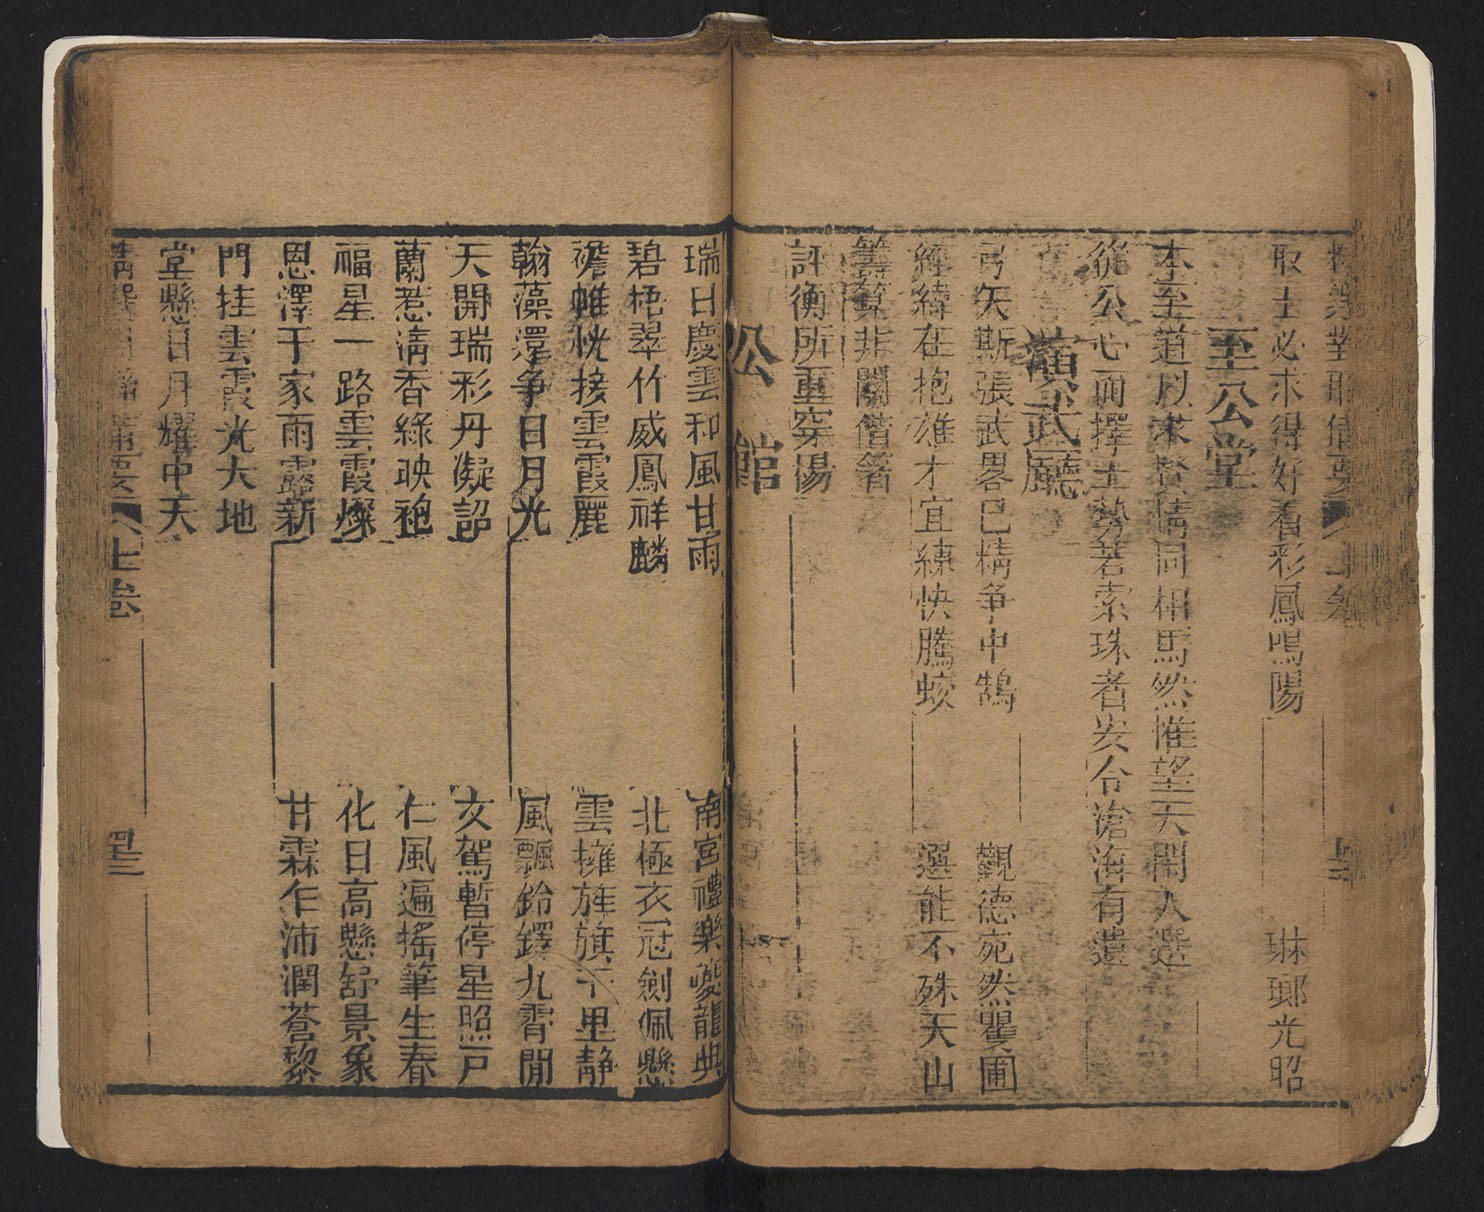 取士必求得好看彩鳳鳴陽 琳瑯光昭
至公堂
本至道以求賢情同相馬然惟望天開人選
從公心而擇士勢若索珠者安令滄海有遺
演武廳
弓矢斯張武畧已精爭中鵠 觀德宛然矍圃
經緯在抱雄才宜練快騰蛟 選能不殊天山
籌算非關借箸
評衡所重穿楊
公館
瑞日慶雲和風甘雨 南宮禮樂夔龍典
碧梧翠竹威鳳祥麟 北極衣冠劍佩懸
襜帷恍接雲霞麗 雲擁旌旗千里静
翰藻澤爭日月光 風飄鈴鐸九霄閒
天開瑞彩丹凝詔 文駕暫停星照戸
蘭惹清香綠映袍 仁風遍搖筆生春
福星一路雲霞燦 化日高懸舒景象
恩澤于家雨露新 甘霖乍沛潤蒼黎
門挂雲霞光大地
堂懸日月耀中天
上卷 四十三